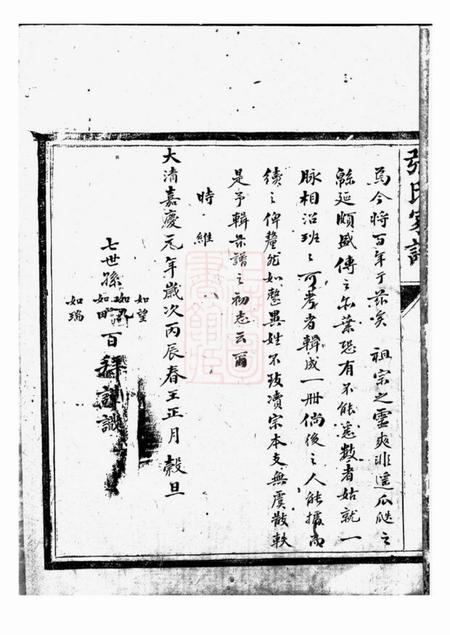 張氏家譜
焉今將百年于茲矣 祖宗之靈爽非遥瓜瓞之
緜延頗盛傳之奕葉恐有不能悉數者姑就一
脉相沿班々可考者輯成一冊倘後之人能據而
續之俾釐然如整異姓不致凟宗本支無虞散軼
是予輯茲譜之初志云爾
時維
大清嘉慶元年歲次丙辰春王正月 穀旦
七世孫
如望
如田
如瑞
百拜謹識